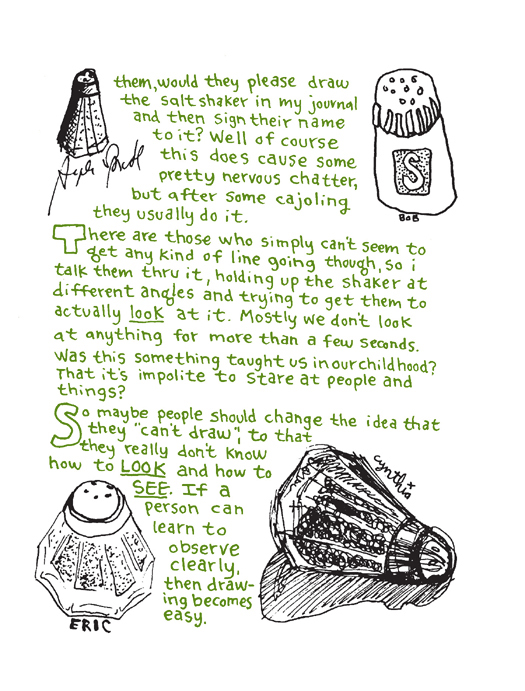 them, would they please draw
the salt shaker in my journal
and then sign their name
to it? Well of course
this does cause some
pretty nervous chatter,
but after some cajoling
they usually do it.
BOB
There are those who simply can't seem to
get any kind of line going though, so i
talk them thru it, holding up the shaker at
different angles and trying to get them to
actually look at it. Mostly we don't look
at anything for more than a few seconds.
Was this something taught us in our childhood?
That it's impolite to stare at people and
things?
So maybe people should change the idea that
they "can't draw", to that
they really don't know
how to LOOK and how to
SEE. If a
person can
learn to
observe
clearly,
then draw-
ing becomes
easy.
S
cynthia
ERIC